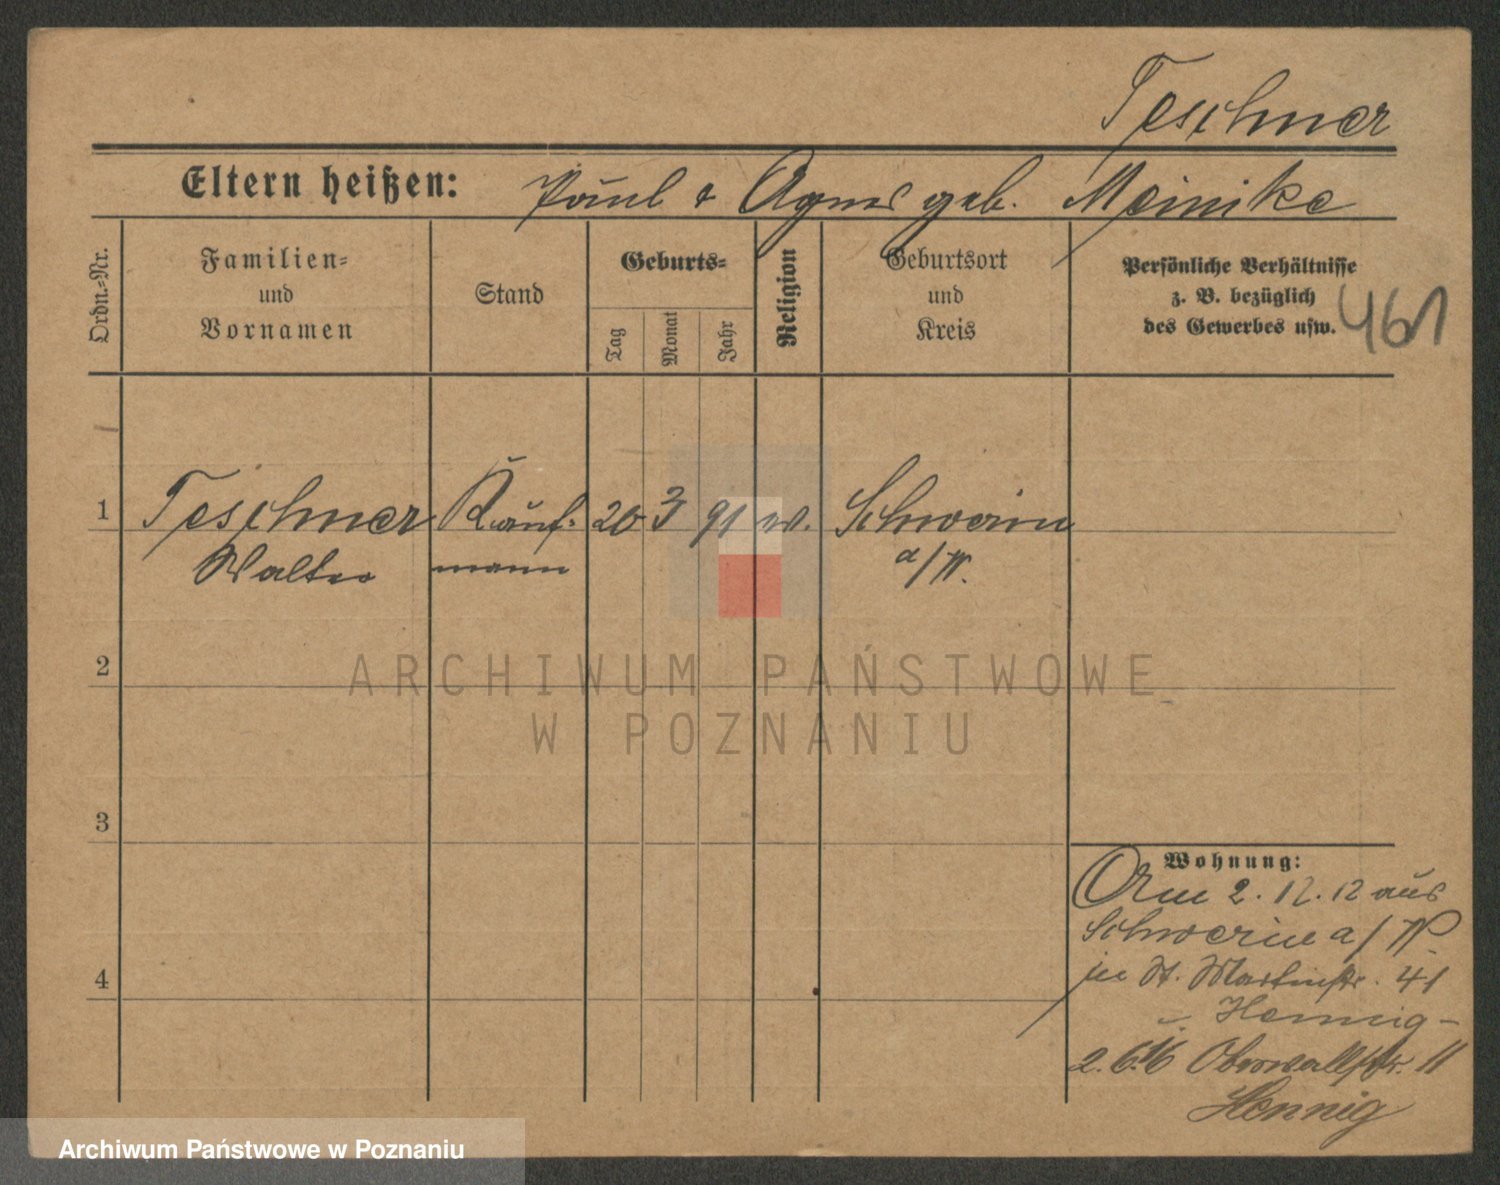 Teschner
Eltern heißen: Paul & Agnes geb. Meinike
Ordn.-Nr.
Familien-
und
Vornamen
Stand
Geburts-
Tag
Monat
Jahr
Religion
Geburtsort
und
Kreis
Persönliche Verhältnisse
z. B. bezüglich
des Gewerbes usw.
461
1 Teschner Kauf- 20 3 91 w. Schwerin
Walter mann a/W.
2
3
4
Wohnung:
2. 12. 12 aus
Schwerin a/W
in St. Martinstr. 41
Hennig
2. 6. 16 Oberwallstr. 11
Hennig
ARCHIWUM PAŃSTWOWE
W POZNANIU
Archiwum Państwowe w Poznaniu